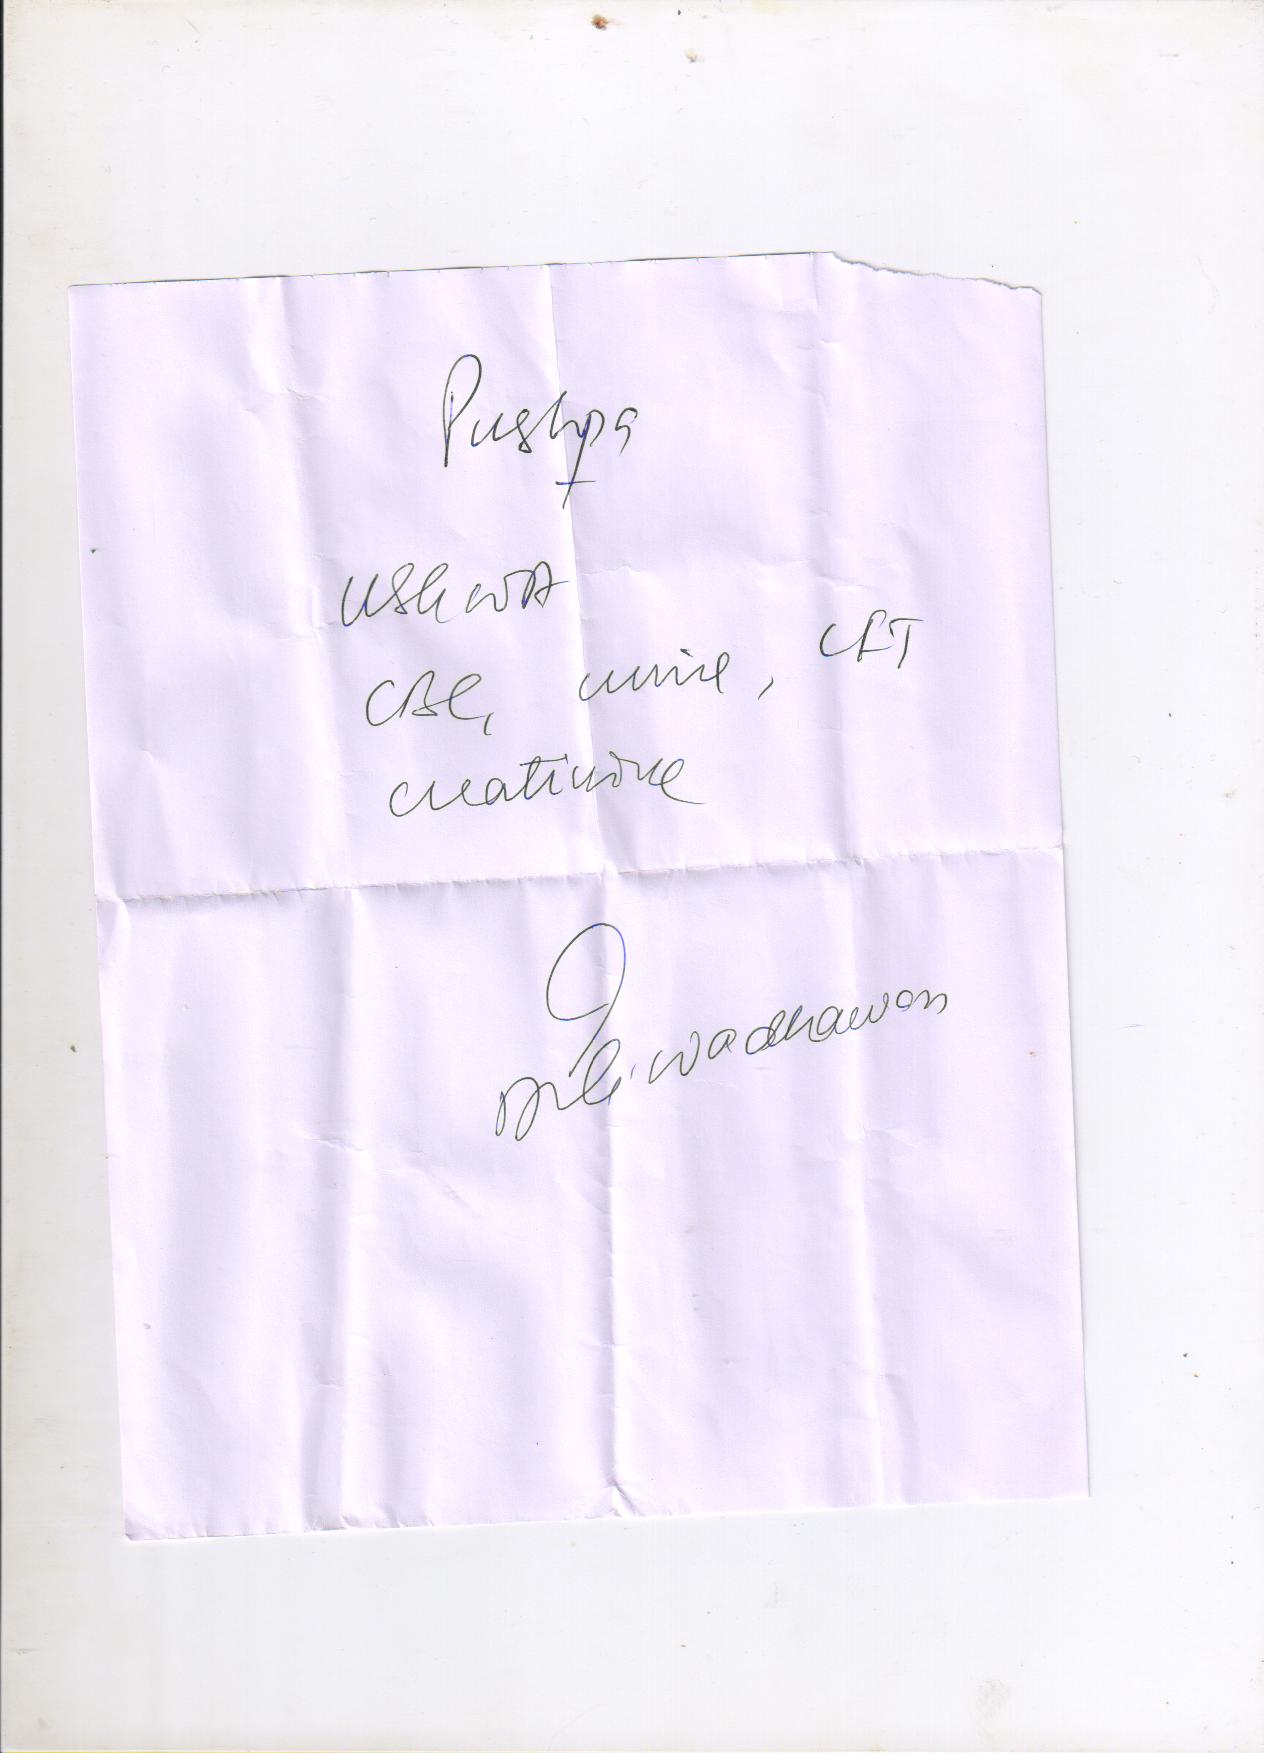 Pushpa
USG W/A
CBC, urine, LFT
creatinine
Wadhawan